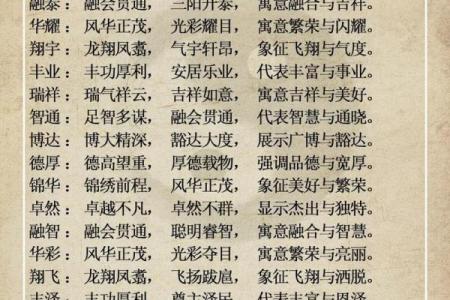 融泰：融会贯通，三阳开泰，寓意融合与吉祥。
华耀：风华正茂，光彩耀目，寓意繁荣与闪耀。
翔宇：龙翔凤翥，气宇轩昂，象征飞翔与气度。
丰业：丰功厚利，安居乐业，代表丰富与事业。
瑞祥：瑞气祥云，吉祥如意，寓意吉祥与美好。
智通：足智多谋，融会贯通，代表智慧与通晓。
博达：博大精深，豁达大度，展示广博与豁达。
德厚：德高望重，厚德载物，强调品德与宽厚。
锦华：锦绣前程，风华正茂，象征美好与繁荣。
卓然：卓越不凡，卓然不群，显示杰出与独特。
融智：融会贯通，聪明睿智，寓意融合与智慧。
华彩：风华正茂，光彩夺目，寓意繁荣与亮丽。
翔飞：龙翔凤翥，飞扬跋扈，象征飞翔与洒脱。
丰泽：丰功厚利，尊主泽民，代表丰富与恩泽。